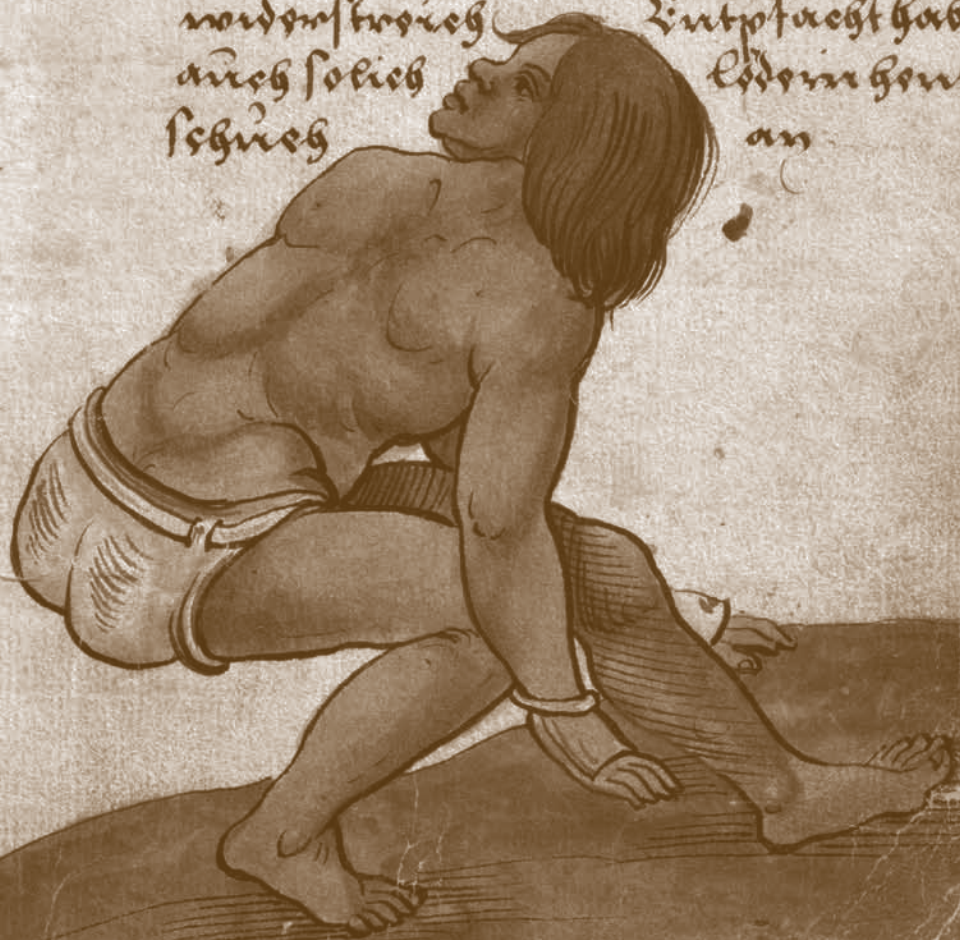 widerstreich Entpfacht hab
auch solich lödern hen
schuch an